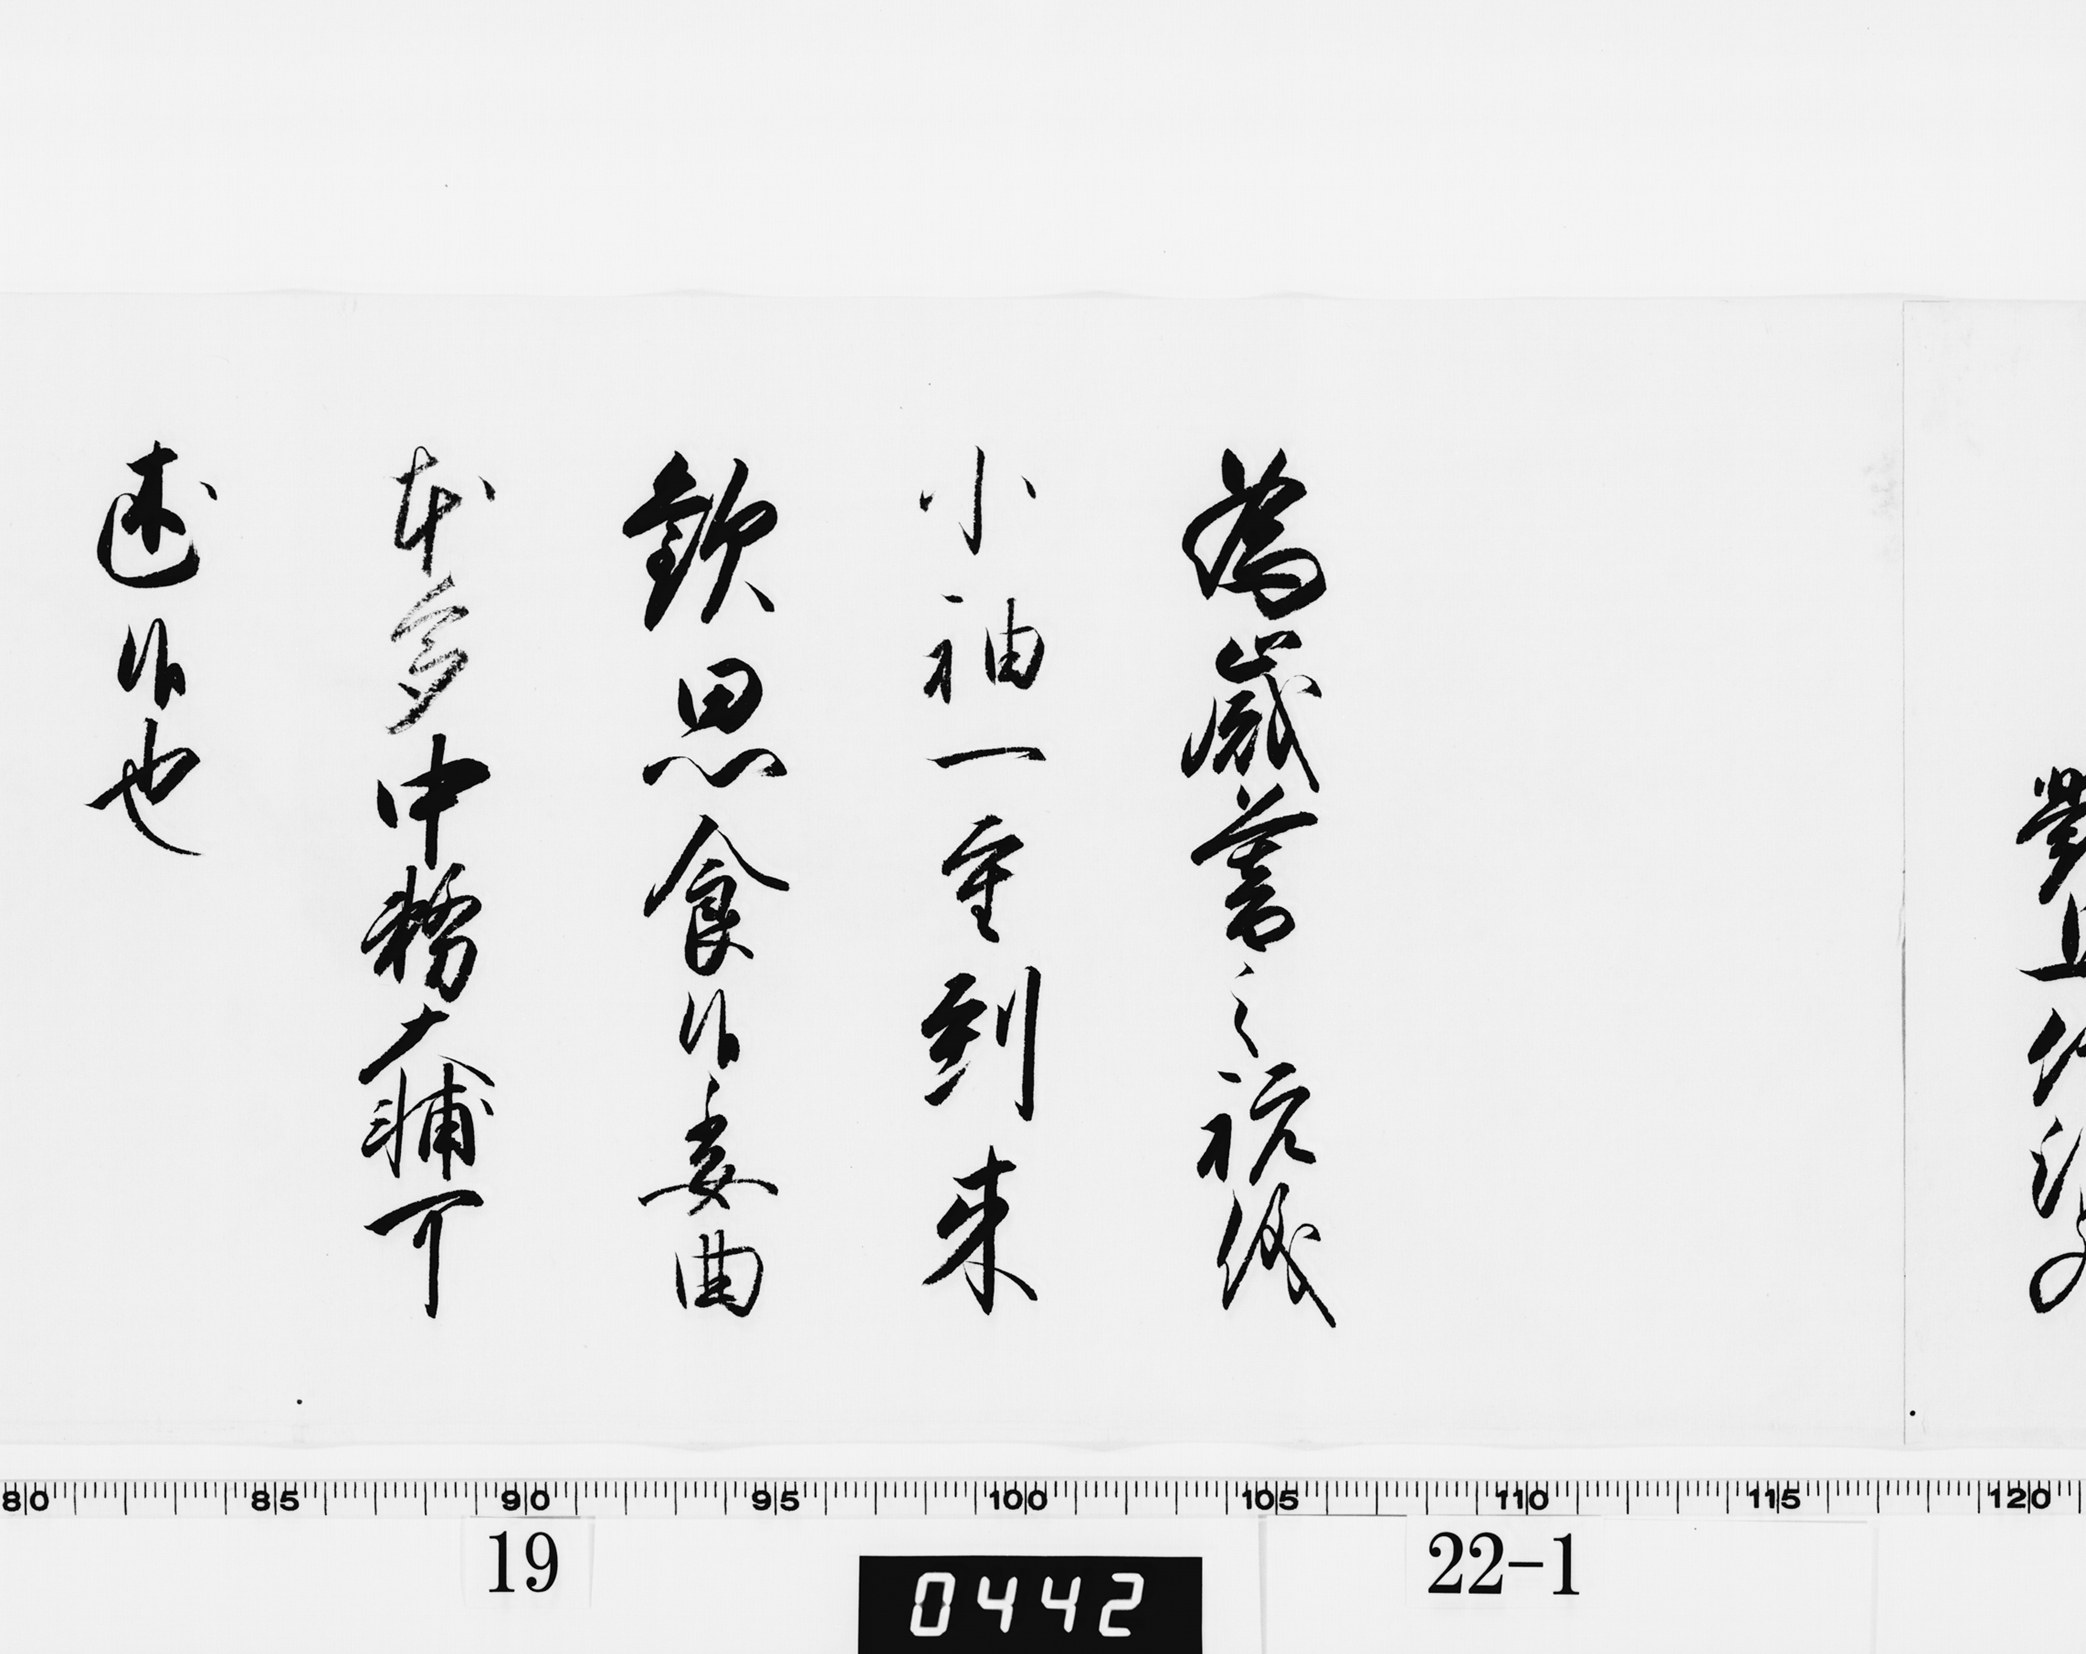 為歳暮之祝儀
小袖一重到来
欣思食候委曲
本多中務大輔可
述候也
80 85 90 95 100 105 110 115 120
19
0442
22-1